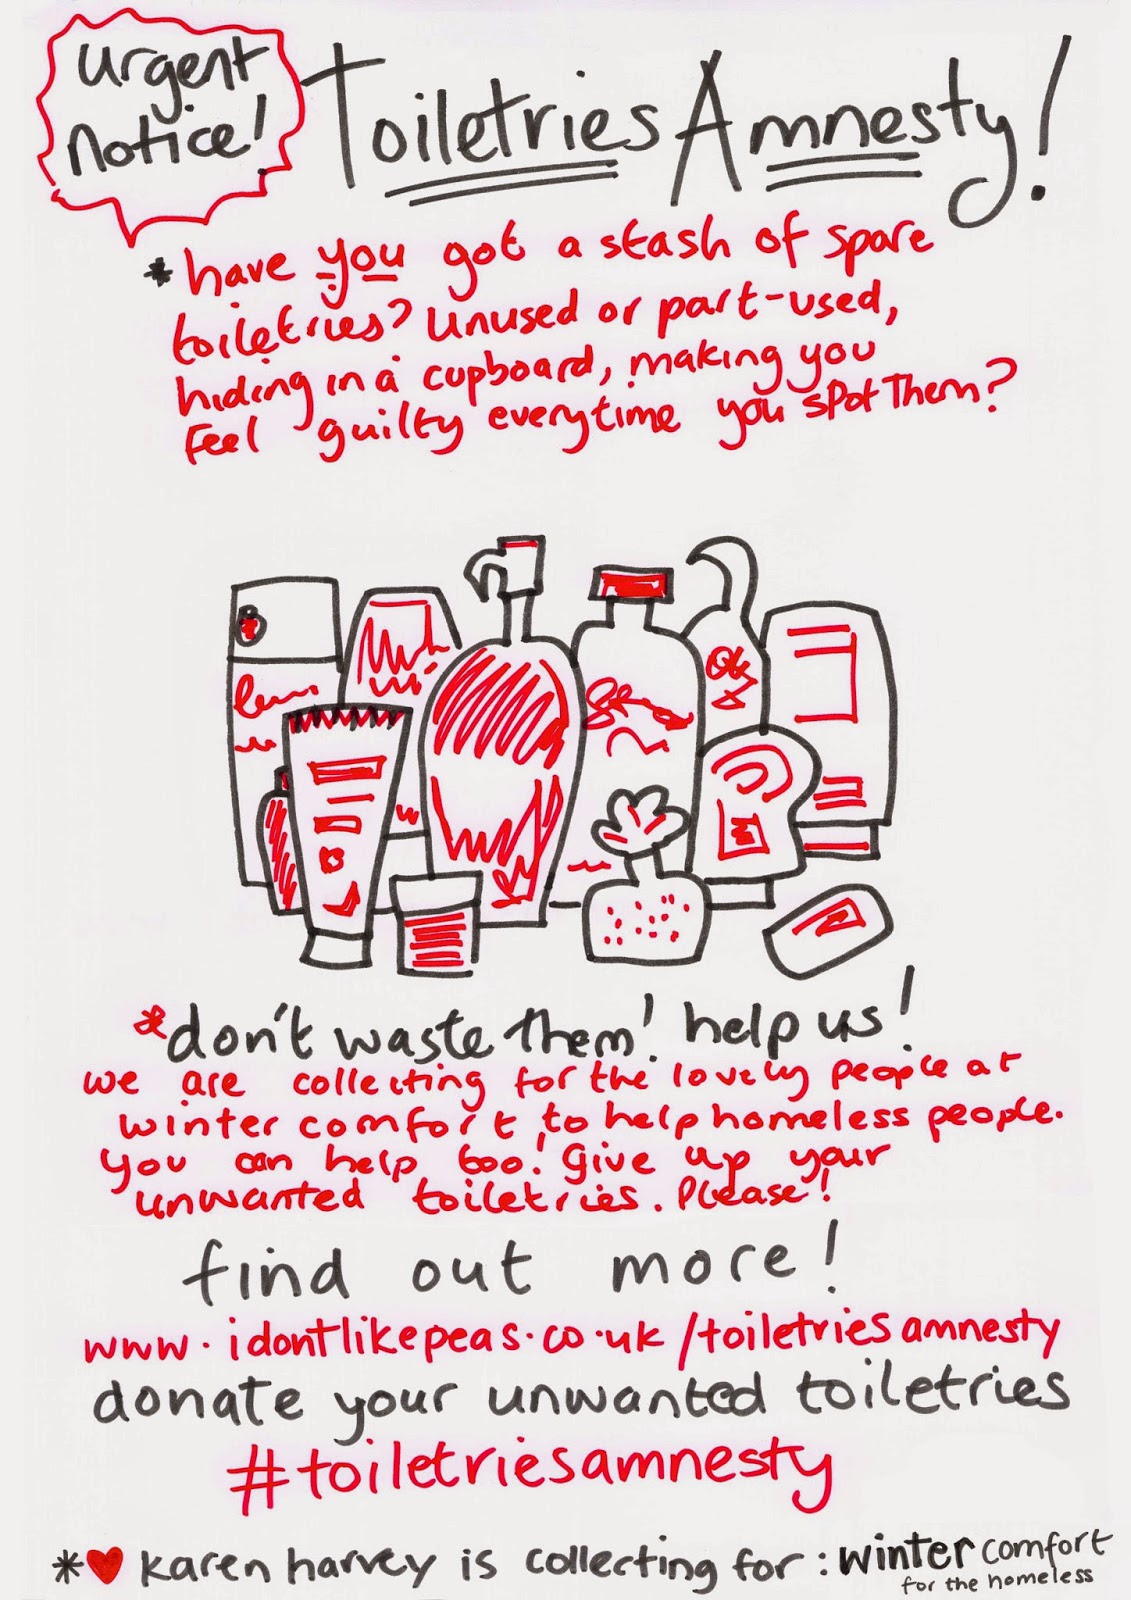 urgent
notice!
Toiletries Amnesty!
* have you got a stash of spare
toiletries? Unused or part-used,
hiding in a cupboard, making you
feel guilty everytime you spot Them?
* don't waste them! help us!
we are collecting for the lovely people at
winter comfort, to help homeless people.
you can help too! Give up your
unwanted toiletries. Please!
find out more!
www.idontlikepeas.co.uk/toiletriesamnesty
donate your unwanted toiletries
#toiletriesamnesty
*♥ karen harvey is collecting for: winter comfort
for the homeless